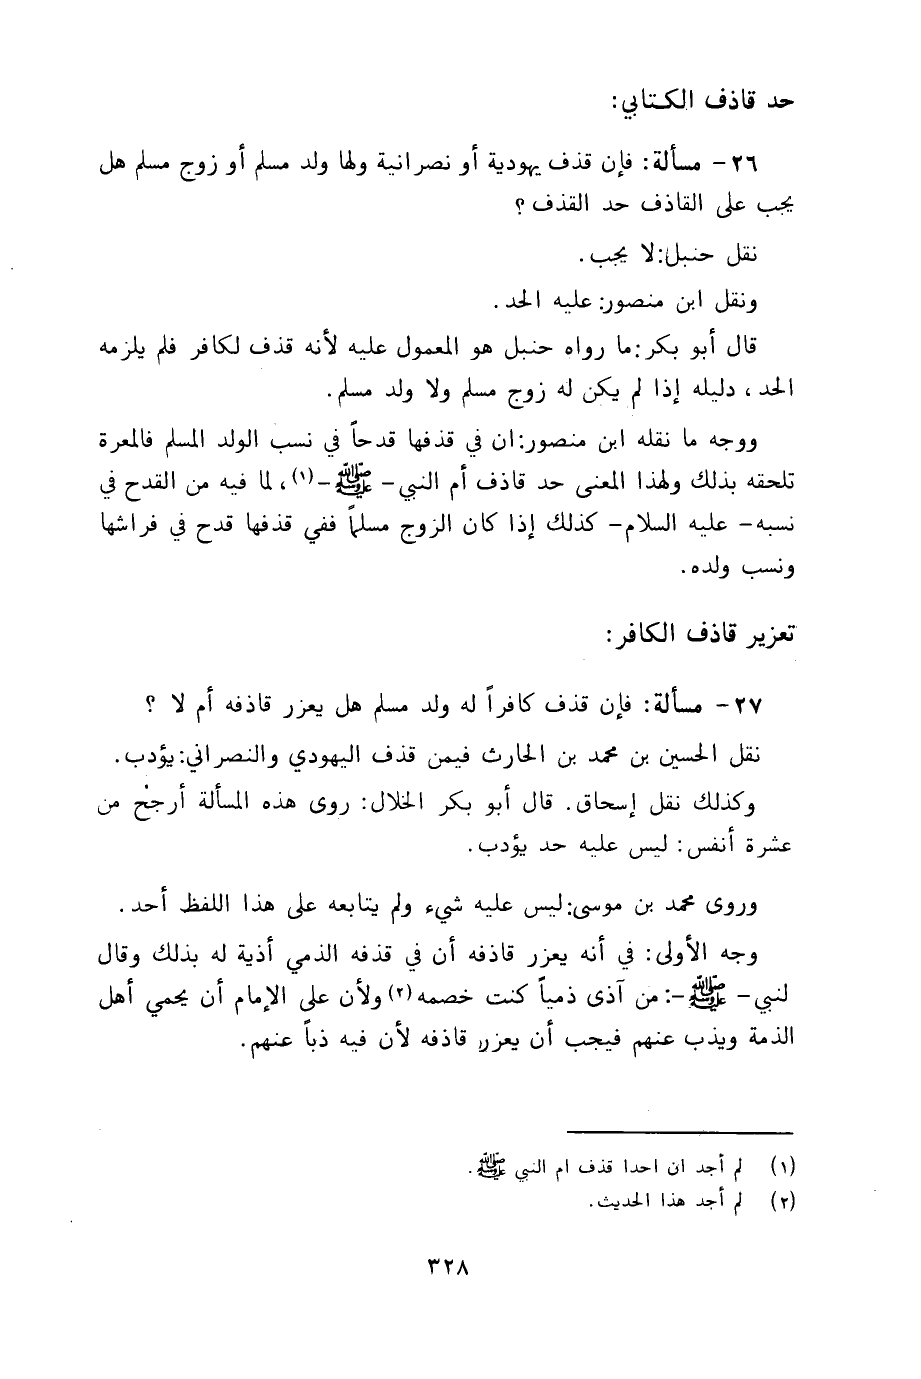 حد قاذف الكتابي:
٢٦ - مسألة: فإن قذف يهودية أو نصرانية ولها ولد مسلم أو زوج مسلم هل
يجب على القاذف حد القذف ؟
نقل حنبل:لا يجب.
ونقل ابن منصور: عليه الحد.
قال أبو بكر:ما رواه حنبل هو المعمول عليه لأنه قذف لكافر فلم يلزمه
الحد، دليله إذا لم يكن له زوج مسلم ولا ولد مسلم.
ووجه ما نقله ابن منصور:ان في قذفها قدحاً في نسب الولد المسلم فالمعرة
تلحقه بذلك ولهذا المعنى حد قاذف أم النبي- ﷺ -(١)، لما فيه من القدح في
نسبه- عليه السلام- كذلك إذا كان الزوج مسلماً ففي قذفها قدح في فراشها
ونسب ولده.
تعزير قاذف الكافر:
٢٧ - مسألة: فإن قذف كافراً له ولد مسلم هل يعزر قاذفه أم لا ؟
نقل الحسين بن محمد بن الحارث فيمن قذف اليهودي والنصراني:يؤدب.
وكذلك نقل إسحاق. قال أبو بكر الخلال: روى هذه المسألة أرجح من
عشرة أنفس: ليس عليه حد يؤدب.
وروى محمد بن موسى:ليس عليه شيء ولم يتابعه على هذا اللفظ أحد.
وجه الأولى: في أنه يعزر قاذفه أن في قذفه الذمي أذية له بذلك وقال
لنبي- ﷺ -: من آذى ذمياً كنت خصمه(٢) ولأن على الإمام أن يحمي أهل
الذمة ويذب عنهم فيجب أن يعزر قاذفه لأن فيه ذباً عنهم.
(١) لم أجد ان احدا قذف ام النبي ﷺ.
(٢) لم أجد هذا الحديث.
٣٢٨